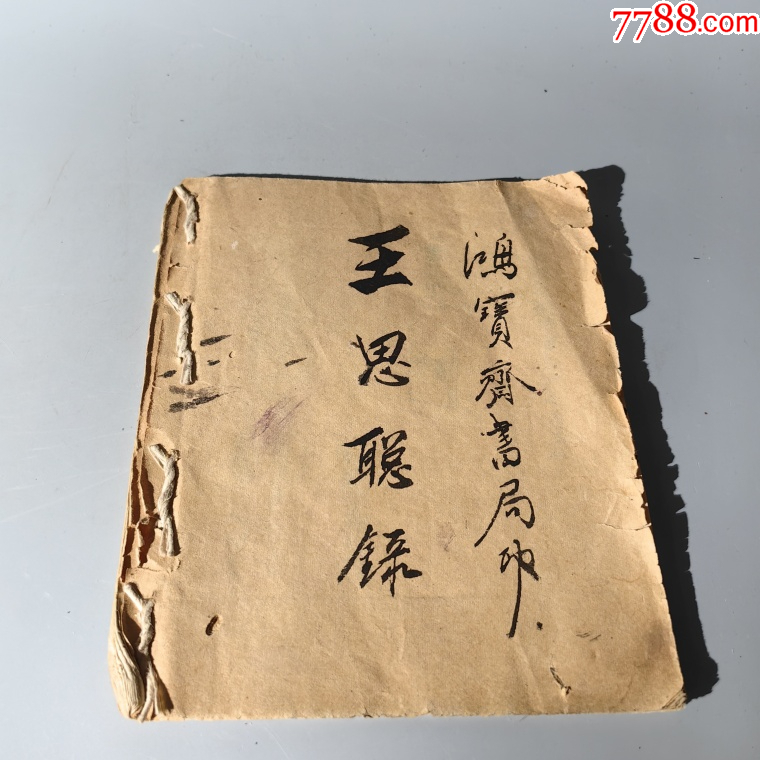 7788.com
鴻寶齋書局印.
王思聪録